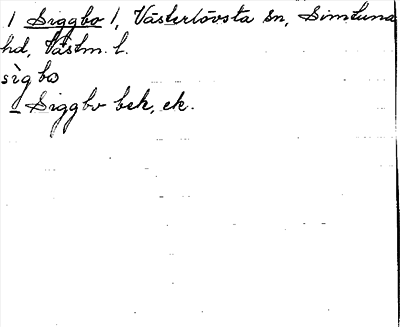 / Siggbo /, Västerlövsta sn, Simtuna
hd, Västm. l.
sìgbo
_ Siggbo bek, ek.